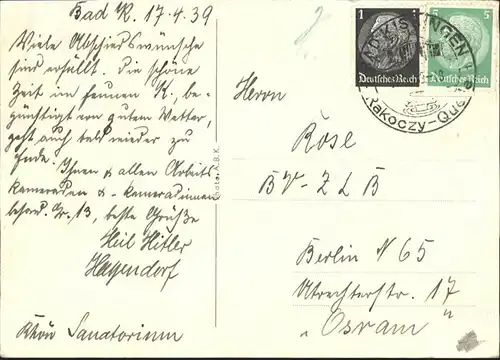 Bad K. 17.4.39
Viele Abschiedswünsche
sind erfüllt. Die schöne
Zeit im K., be-
günstigt von gutem Wetter,
geht auch bald wieder zu
Ende. Ihnen & allen Arbeits-
kameraden & -kameradinnen
13, beste Grüße
Heil Hitler
Hagendorf
Rhön Sanatorium
1
Deutsches Reich
5
5
Deutsches Reich
BAD KISSINGEN
Rakoczy-Quelle
Herrn
Rose
BV-ZLB
Berlin N 65
Utrechterstr. 17
„Osram"